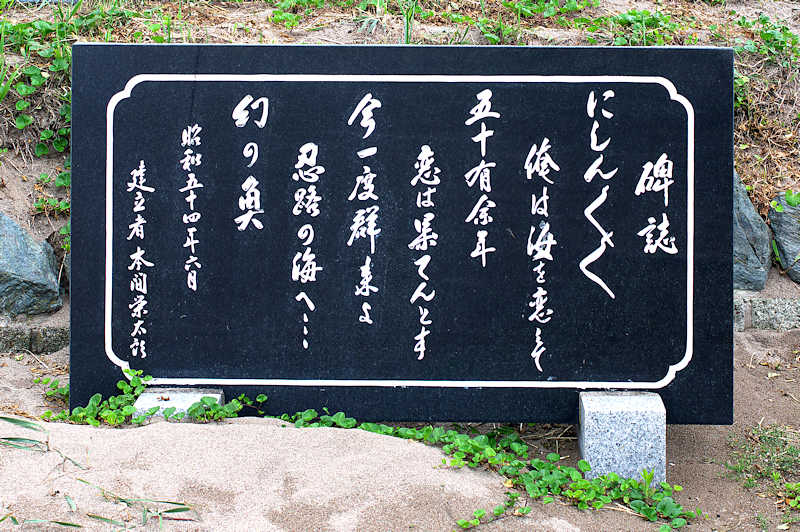 碑誌
にしん〱〱
俺は海を恋して
五十有余年
恋は果てんとす
今一度群来よ
忍路の海へ…
幻の魚
昭和五十四年六月
建立者 本間栄太郎